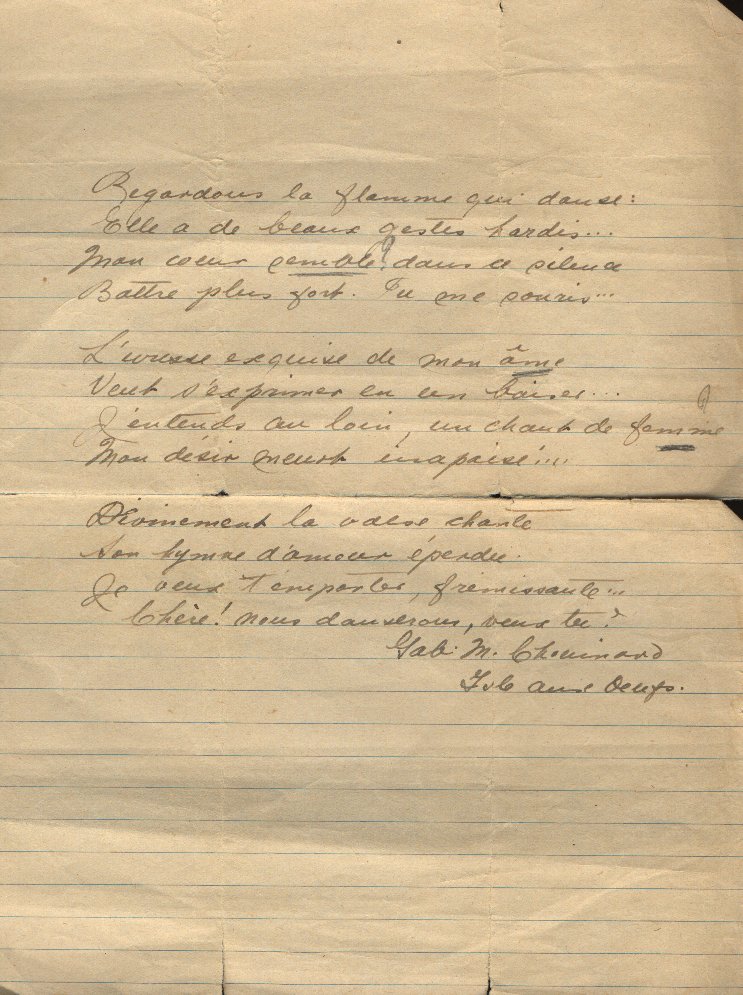 Regardons la flamme qui danse:
Elle a de beaux gestes hardis...
Mon coeur semble? dans ce silence
Battre plus fort. Tu me souris...
L'ivresse exquise de mon âme
Veut s'exprimer en un baiser...
J'entends au loin, un chant de femme ?
Mon désir meurt inapaisé!...
Divinement la valse chante
Son hymne d'amour éperdu.
Je veux t'emporter, frémissante...
Chère! nous danserons, veux tu?
Gab. M. Chouinard
Isle aux Oeufs.